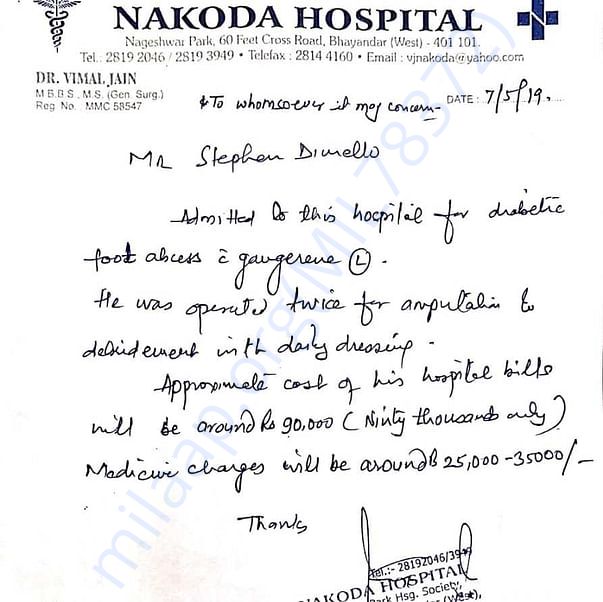 NAKODA HOSPITAL
Nageshwar Park, 60 Feet Cross Road, Bhayandar (West) - 401 101.
Tel.: 2819 2046 / 2819 3949 • Telefax : 2814 4160 • Email : vjnakoda@yahoo.com
DR. VIMAL JAIN
M.B.B.S., M.S. (Gen. Surg.)
Reg No. MMC 58547
To whomsoever it may concern
DATE : 7/5/19.
Mr Stephen Dimello
Admitted to this hospital for diabetic
foot abcess c̄ gangerene (L).
He was operated twice for amputation &
debridement with daily dressing.
Approximate cost of his hospital bills
will be around Rs 90,000 (Ninty thousands only)
Medicine charges will be around Rs 25,000-35000/-
Thanks
Tel.:- 28192046/3949
NAKODA HOSPITAL
Park Hsg. Society,
(West),
milaap.org(MIL78372)